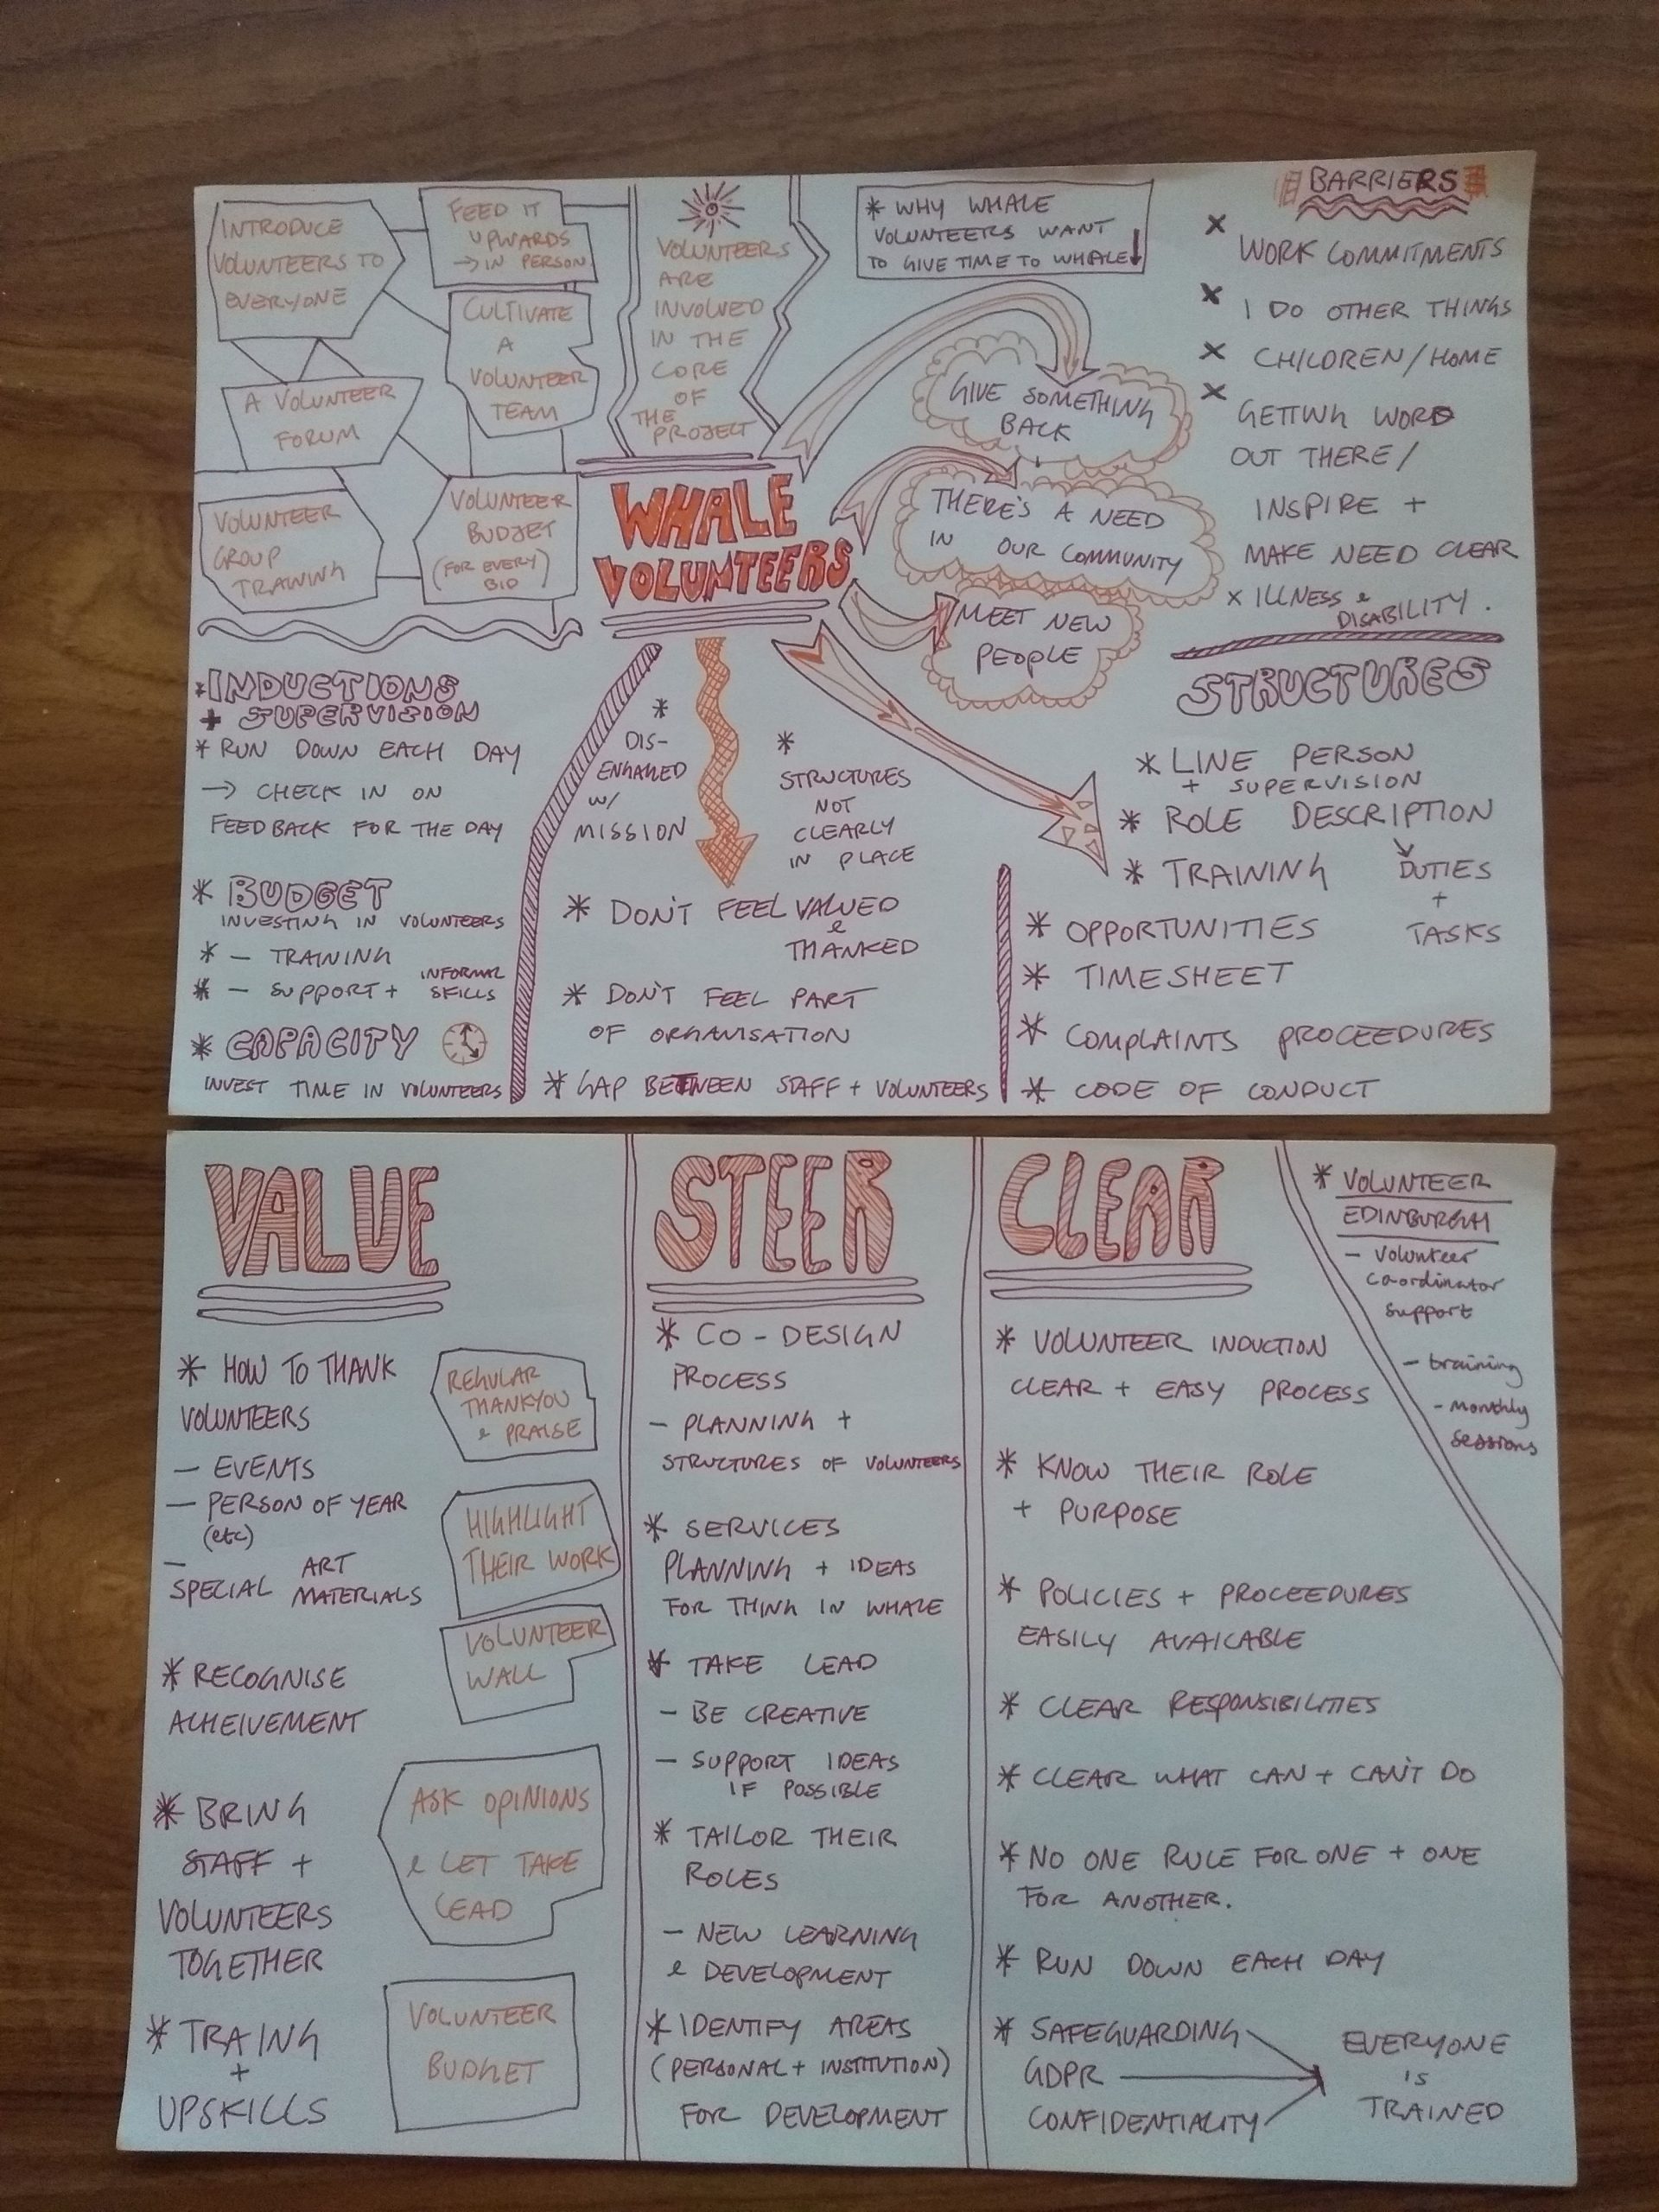 INTRODUCE
VOLUNTEERS TO
EVERYONE
FEED IT
UPWARDS
→ IN PERSON
CULTIVATE
A
VOLUNTEER
TEAM
A VOLUNTEER
FORUM
VOLUNTEER
GROUP
TRAINING
VOLUNTEER
BUDGET
(FOR EVERY)
BID
VOLUNTEERS
ARE
INVOLVED
IN THE
CORE
OF
THE
PROJECT
WHALE
VOLUNTEERS
* WHY WHALE
VOLUNTEERS WANT
TO GIVE TIME TO WHALE
GIVE SOMETHING
BACK
THERE'S A NEED
IN OUR COMMUNITY
MEET NEW
PEOPLE
BARRIERS
X WORK COMMITMENTS
X I DO OTHER THINGS
X CHILDREN/HOME
X GETTING WORD
OUT THERE/
INSPIRE +
MAKE NEED CLEAR
X ILLNESS &
DISABILITY.
* INDUCTIONS
+ SUPERVISION
* RUN DOWN EACH DAY
→ CHECK IN ON
FEEDBACK FOR THE DAY
* BUDGET
INVESTING IN VOLUNTEERS
* - TRAINING
* - SUPPORT + INFORMAL
SKILLS
* CAPACITY
INVEST TIME IN VOLUNTEERS
*
DIS-
ENGAGED
W/
MISSION
*
STRUCTURES
NOT
CLEARLY
IN PLACE
* DON'T FEEL VALUED
&
THANKED
* DON'T FEEL PART
OF ORGANISATION
* GAP BETWEEN STAFF + VOLUNTEERS
STRUCTURES
* LINE PERSON
+ SUPERVISION
* ROLE DESCRIPTION
↘ DUTIES
+
TASKS
* TRAINING
* OPPORTUNITIES
* TIMESHEET
* COMPLAINTS PROCEEDURES
* CODE OF CONDUCT
VALUE
* HOW TO THANK
VOLUNTEERS
- EVENTS
- PERSON OF YEAR
(etc)
- SPECIAL ART
MATERIALS
* RECOGNISE
ACHEIVEMENT
* BRING
STAFF +
VOLUNTEERS
TOGETHER
* TRAING
+
UPSKILLS
REGULAR
THANKYOU
& PRAISE
HIGHLIGHT
THEIR WORK
VOLUNTEER
WALL
ASK OPINIONS
& LET TAKE
LEAD
VOLUNTEER
BUDGET
STEER
* CO-DESIGN
PROCESS
- PLANNING +
STRUCTURES OF VOLUNTEERS
* SERVICES
PLANNING + IDEAS
FOR THING IN WHALE
* TAKE LEAD
- BE CREATIVE
- SUPPORT IDEAS
IF POSSIBLE
* TAILOR THEIR
ROLES
- NEW LEARNING
& DEVELOPMENT
* IDENTIFY AREAS
(PERSONAL + INSTITUTION)
FOR DEVELOPMENT
CLEAR
* VOLUNTEER INDUCTION
CLEAR + EASY PROCESS
* KNOW THEIR ROLE
+ PURPOSE
* POLICIES + PROCEEDURES
EASILY AVAILABLE
* CLEAR RESPONSIBILITIES
* CLEAR WHAT CAN + CAN'T DO
* NO ONE RULE FOR ONE + ONE
FOR ANOTHER.
* RUN DOWN EACH DAY
* SAFEGUARDING
GDPR
CONFIDENTIALITY
EVERYONE
IS
TRAINED
* VOLUNTEER
EDINBURGH
- Volunteer
Coordinator
Support
- training
- monthly
sessions